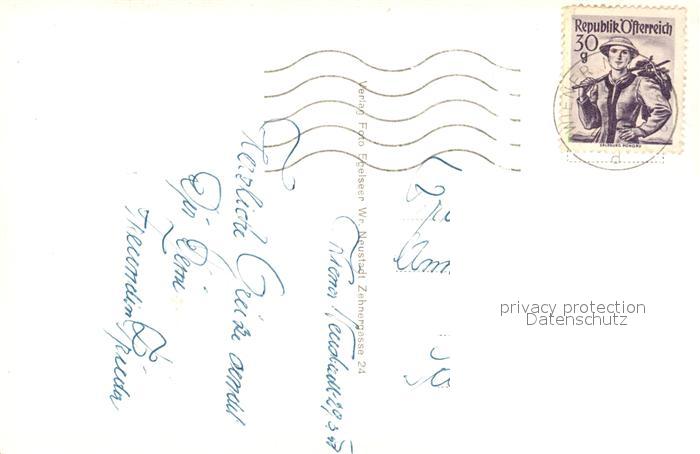 Republik Österreich
30
g
SALZBURG PONGAU
WIENER
d
Verlag Foto Egelseer Wr. Neustadt Zehnergasse 24
Wiener Neustadt 29.3.
Herzliche Grüße sendet
Dir Deine
Freundin Frieda
privacy protection
Datenschutz